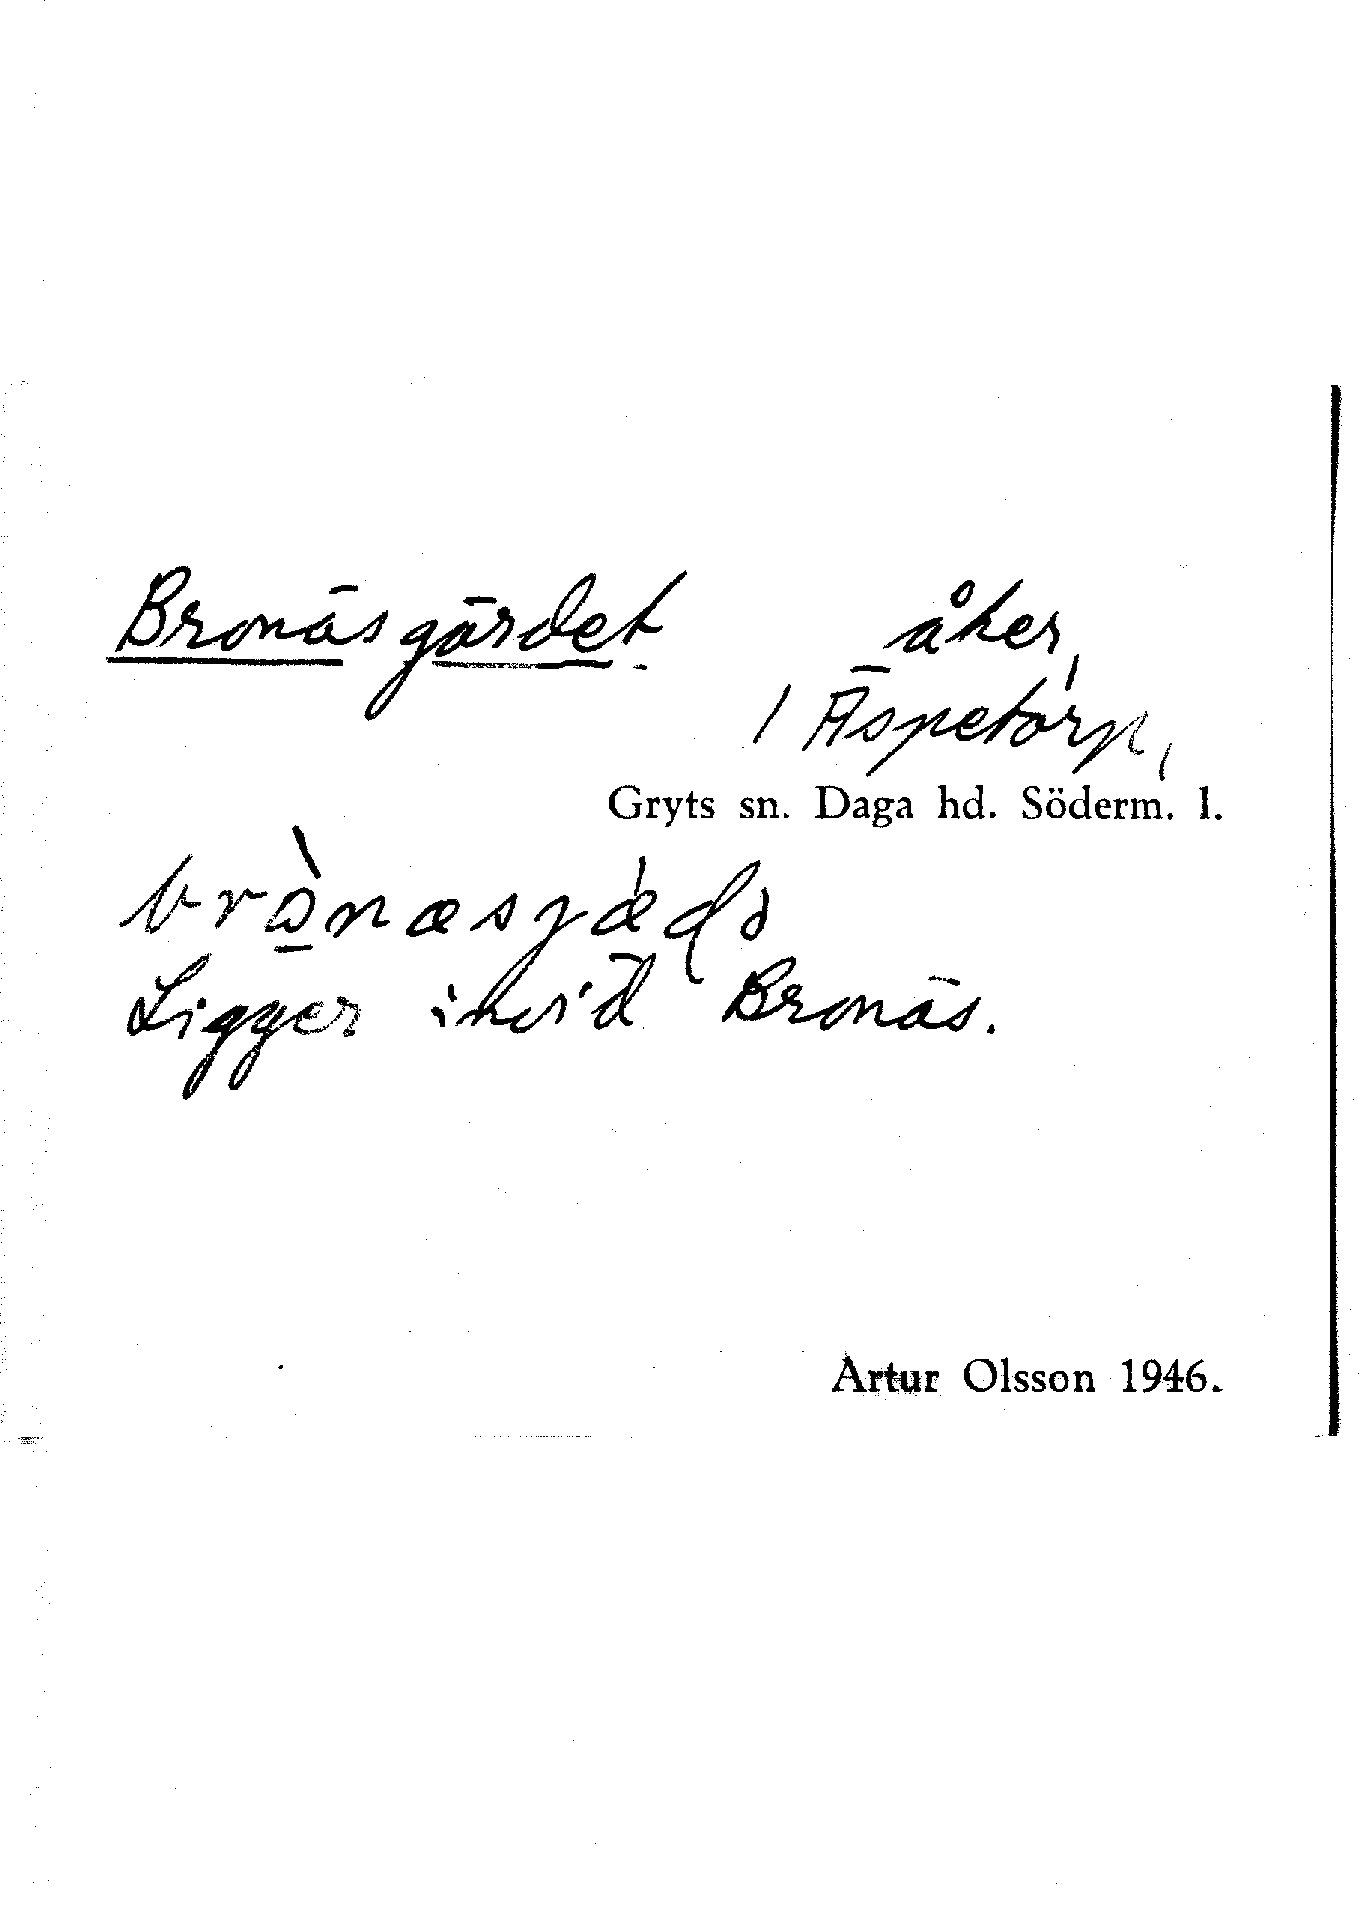 Bronäsgärdet åker,
/ Äspetorp,
Gryts sn. Daga hd. Söderm. l.
Ligger invid Bronäs.
Artur Olsson 1946.